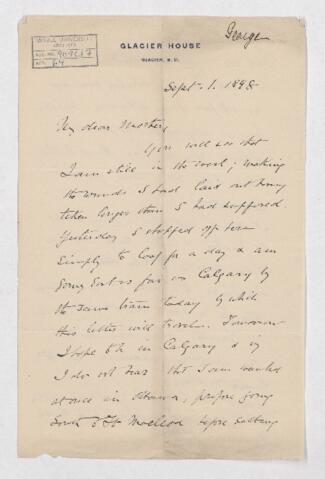 George
GLACIER HOUSE
GLACIER, B. C.
Sept. 1. 1898
My dear Mother,
You will see that
I am still in the west; making
the rounds I had laid out having
taken longer than I had supposed.
Yesterday I stopped off here
simply to loaf for a day & am
going East as far as Calgary by
the same train today by which
this letter will travel. Tomorrow
I hope to be in Calgary & if
I do not hear that I am wanted
at once in Ottawa, propose going
South to Ft. Macleod before getting